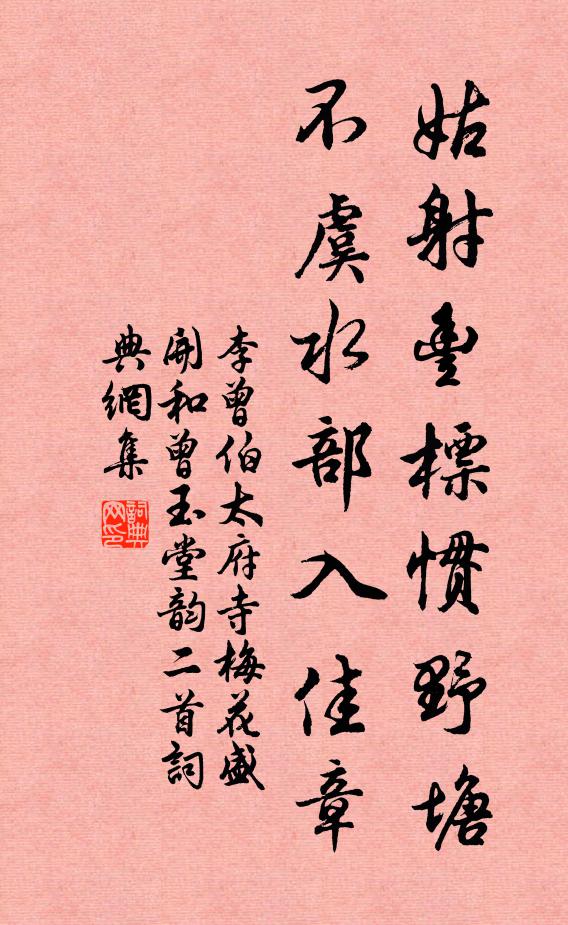 姑射豐標慣野塘
不虞水部入佳章
李曾伯太府寺梅花盛
開和曾玉堂韵二首詞
典網集
詞典
网印